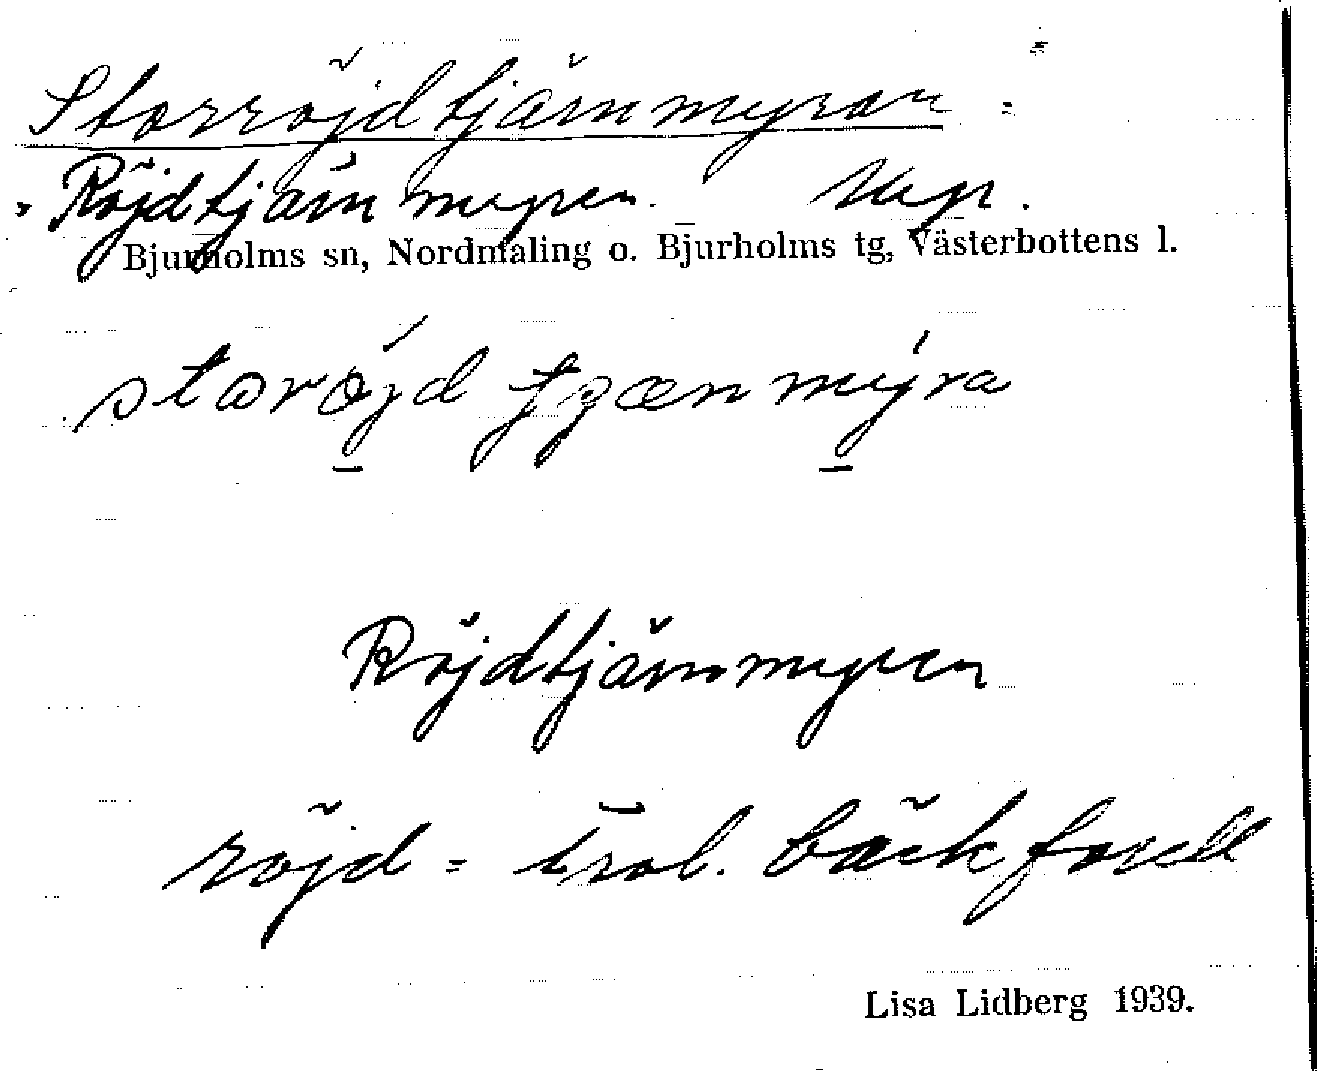 Storröjdtjärnmyran =
Röjdtjärnmyren. Myr.
Bjurholms sn, Nordmaling o. Bjurholms tg, Västerbottens l.
Röjdtjärnmyren
röjd = trol. bäckforell
Lisa Lidberg 1939.